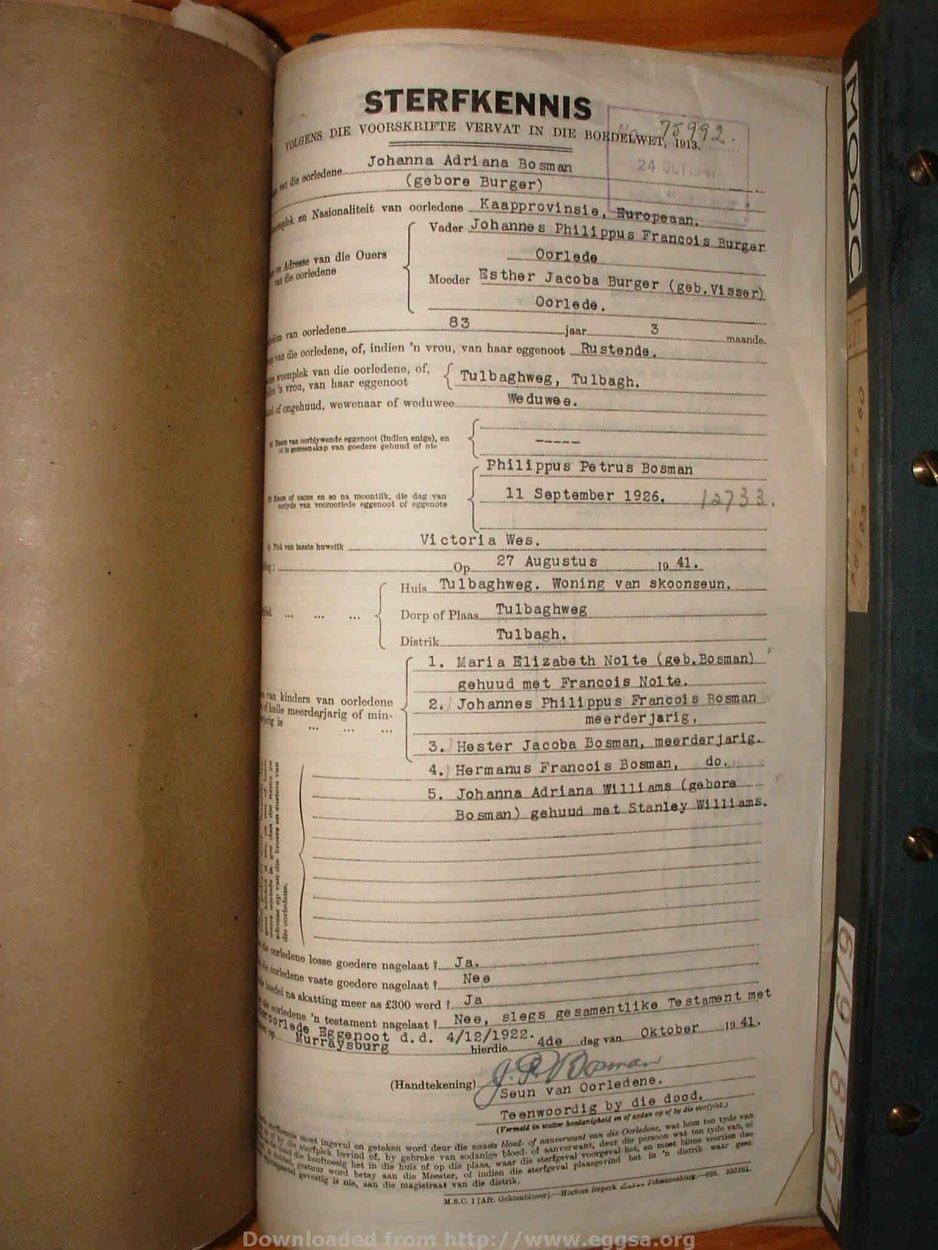 STERFKENNIS
VOLGENS DIE VOORSKRIFTE VERVAT IN DIE BOEDELWET, 1913.
No. 75992.
24 OCT
van die oorledene Johanna Adriana Bosman
(gebore Burger)
en Nasionaliteit van oorledene Kaapprovinsie, Europeaan.
Vader Johannes Philippus Francois Burger
Adresse van die Ouers
van die oorledene
Oorlede
Moeder Esther Jacoba Burger (geb.Visser)
Oorlede.
van oorledene 83 jaar 3 maande.
van die oorledene, of, indien 'n vrou, van haar eggenoot Rustende.
woonplek van die oorledene, of,
'n vrou, van haar eggenoot
Tulbaghweg, Tulbagh.
of ongehuud, wewenaar of weduwee Weduwee.
Naam van oorblywende eggenoot (indien enige), en
of in gemeenskap van goedere gehuud of nie
-----
Philippus Petrus Bosman
Naam of name en so na moontlik, die dag van
van vooroorlede eggenoot of eggenote
11 September 1926. 12733.
Plek van laaste huwelik Victoria Wes.
Op 27 Augustus 19 41.
Huis Tulbaghweg. Woning van skoonseun.
Dorp of Plaas Tulbaghweg
Distrik Tulbagh.
van kinders van oorledene
of hulle meerderjarig of min-
is
1. Maria Elizabeth Nolte (geb.Bosman)
gehuud met Francois Nolte.
2. Johannes Philippus Francois Bosman
meerderjarig,
3. Hester Jacoba Bosman, meerderjarig.
4. Hermanus Francois Bosman, do.
5. Johanna Adriana Williams (gebore
Bosman) gehuud met Stanley Williams.
die oorledene.
die oorledene losse goedere nagelaat ? Ja.
die oorledene vaste goedere nagelaat ? Nee
boedel na skatting meer as £300 werd ? Ja
die oorledene 'n testament nagelaat ? Nee, slegs gesamentlike Testament met
vooroorlede Eggenoot d.d. 4/12/1922.
op Murraysburg hierdie 4de dag van Oktober 19 41.
(Handtekening) J.P.F.Bosman
Seun van Oorledene.
Teenwoordig by die dood.
(Vermeld in watter hoedanigheid en of aldan op of by die sterfplek.)
moet ingevul en geteken word deur die naaste bloed- of aanverwant van die Oorledene, wat hom ten tyde van
sterfplek bevind of, by gebreke van sodanige bloed- of aanverwant, deur die persoon wat ten tyde van, of
die dood die hooftoesig het in die huis of op die plaas, waar die sterfgeval voorgeval het, en moet binne veertien dae
gestuur word aan die Meester, of indien die sterfgeval plaasgevind het in 'n distrik waar geen
gevestig is nie, aan die magistraat van die distrik.
M.S.C. 1 (Afr. Gekombineer).—Hortors Beperk Johannesburg.—
MOOC
6/9/8267
Downloaded from http://www.eggsa.org